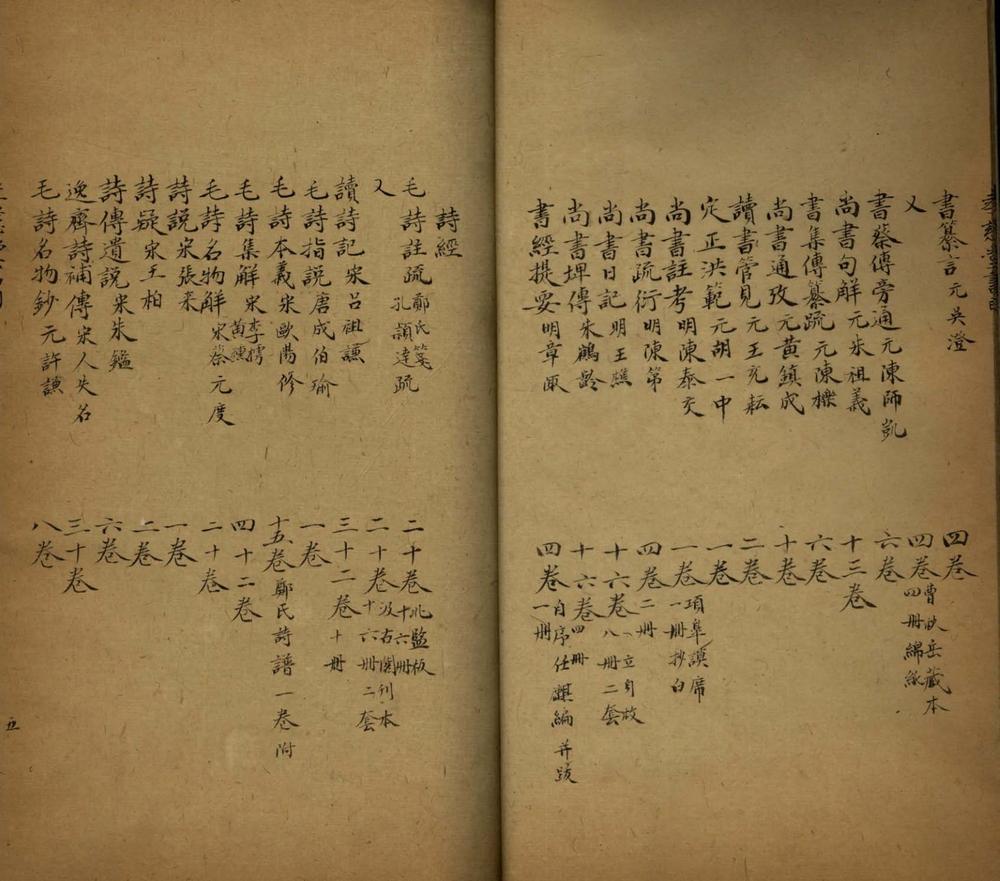 書纂言 元吳澄 四卷
又 四卷 曹秋岳藏本 四册綿紙
書蔡傳旁通 元陳師凱 六卷
尚書句解 元朱祖義 十三卷
書集傳纂疏 元陳櫟 六卷
尚書通攷 元黃鎮成 十卷
讀書管見 元王充耘 二卷
定正洪範 元胡一中 一卷
尚書註考 明陳泰交 一卷 項皐謨席 一册抄白
尚書疏衍 明陳第 四卷 二册
尚書日記 明王樵 十六卷 八册二套
尚書埤傳 朱鶴齡 十六卷 四册
書經提要 明章陬 四卷 自序仕編并跋 一册
詩經
毛詩註疏 鄭氏箋 孔頴達疏 二十卷 北監板 十六册
又 二十卷 汲古閣刊本 十六册二套
讀詩記 宋呂祖謙 三十二卷 十册
毛詩指説 唐成伯瑜 一卷
毛詩本義 宋歐陽修 十五卷 鄭氏詩譜一卷附
毛詩集解 宋李樗 黃櫄 四十二卷
毛詩名物解 宋蔡元度 二十卷
詩説 宋張耒 一卷
詩疑 宋王柏 二卷
詩傳遺説 宋朱鑑 六卷
逸齋詩補傳 宋人失名 三十卷
毛詩名物鈔 元許謙 八卷
五